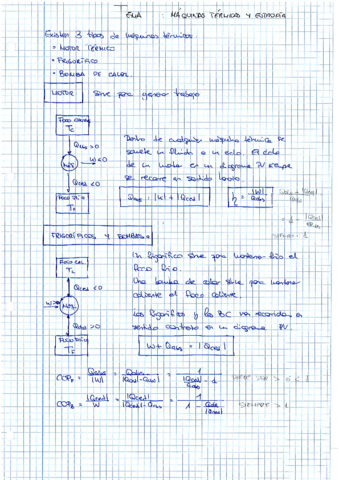 TEMA : MÁQUINAS TÉRMICAS Y ENTROPÍA
Existen 3 tipos de máquinas térmicas:
• MOTOR TÉRMICO
• FRIGORÍFICO
• BOMBA DE CALOR
MOTOR Sirve para generar trabajo
FOCO CALIENTE
Tc
Qabs > 0
MT W < 0
Qced < 0
FOCO FRÍO
TF
Dentro de cualquier máquina térmica se
somete un fluido a un ciclo. El ciclo
de un motor en un diagrama PV siempre
se recorre en sentido horario.
Qabs = |W| + |Qced|
η = |W| / Qabs = Qabs - |Qced| / Qabs
= 1 - |Qced| / Qabs
SIEMPRE < 1
FRIGORÍFICOS Y BOMBAS
FOCO CAL
Tc
Qced < 0
W>0
Qabs > 0
FOCO FRÍO
TF
Un frigorífico sirve para mantener frío el
foco frío.
Una bomba de calor sirve para mantener
caliente el foco caliente.
Los frigoríficos y las BC van recorridos en
sentido contrario en un diagrama PV
W + Qabs = |Qced|
COPF = Qabs / |W| = Qabs / |Qced| - Qabs = 1 / |Qced| / Qabs - 1
COPB = |Qced| / W = |Qced| / |Qced| - Qabs = 1 / 1 - Qabs / |Qced| SIEMPRE > 1